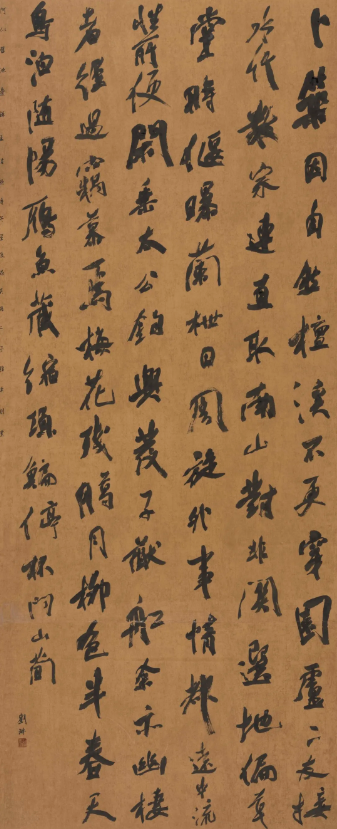 卜築因自然檀溪不更穿園廬二友接
水竹數家連直取南山對非關選地偏草
堂時偃曝蘭枻日周旋外事情都遠中流
性所便閒垂太公釣興發子猷船余亦幽棲
者經過竊慕焉梅花殘臘月柳色半春天
鳥泊隨陽雁魚藏縮項鯿停杯問山簡